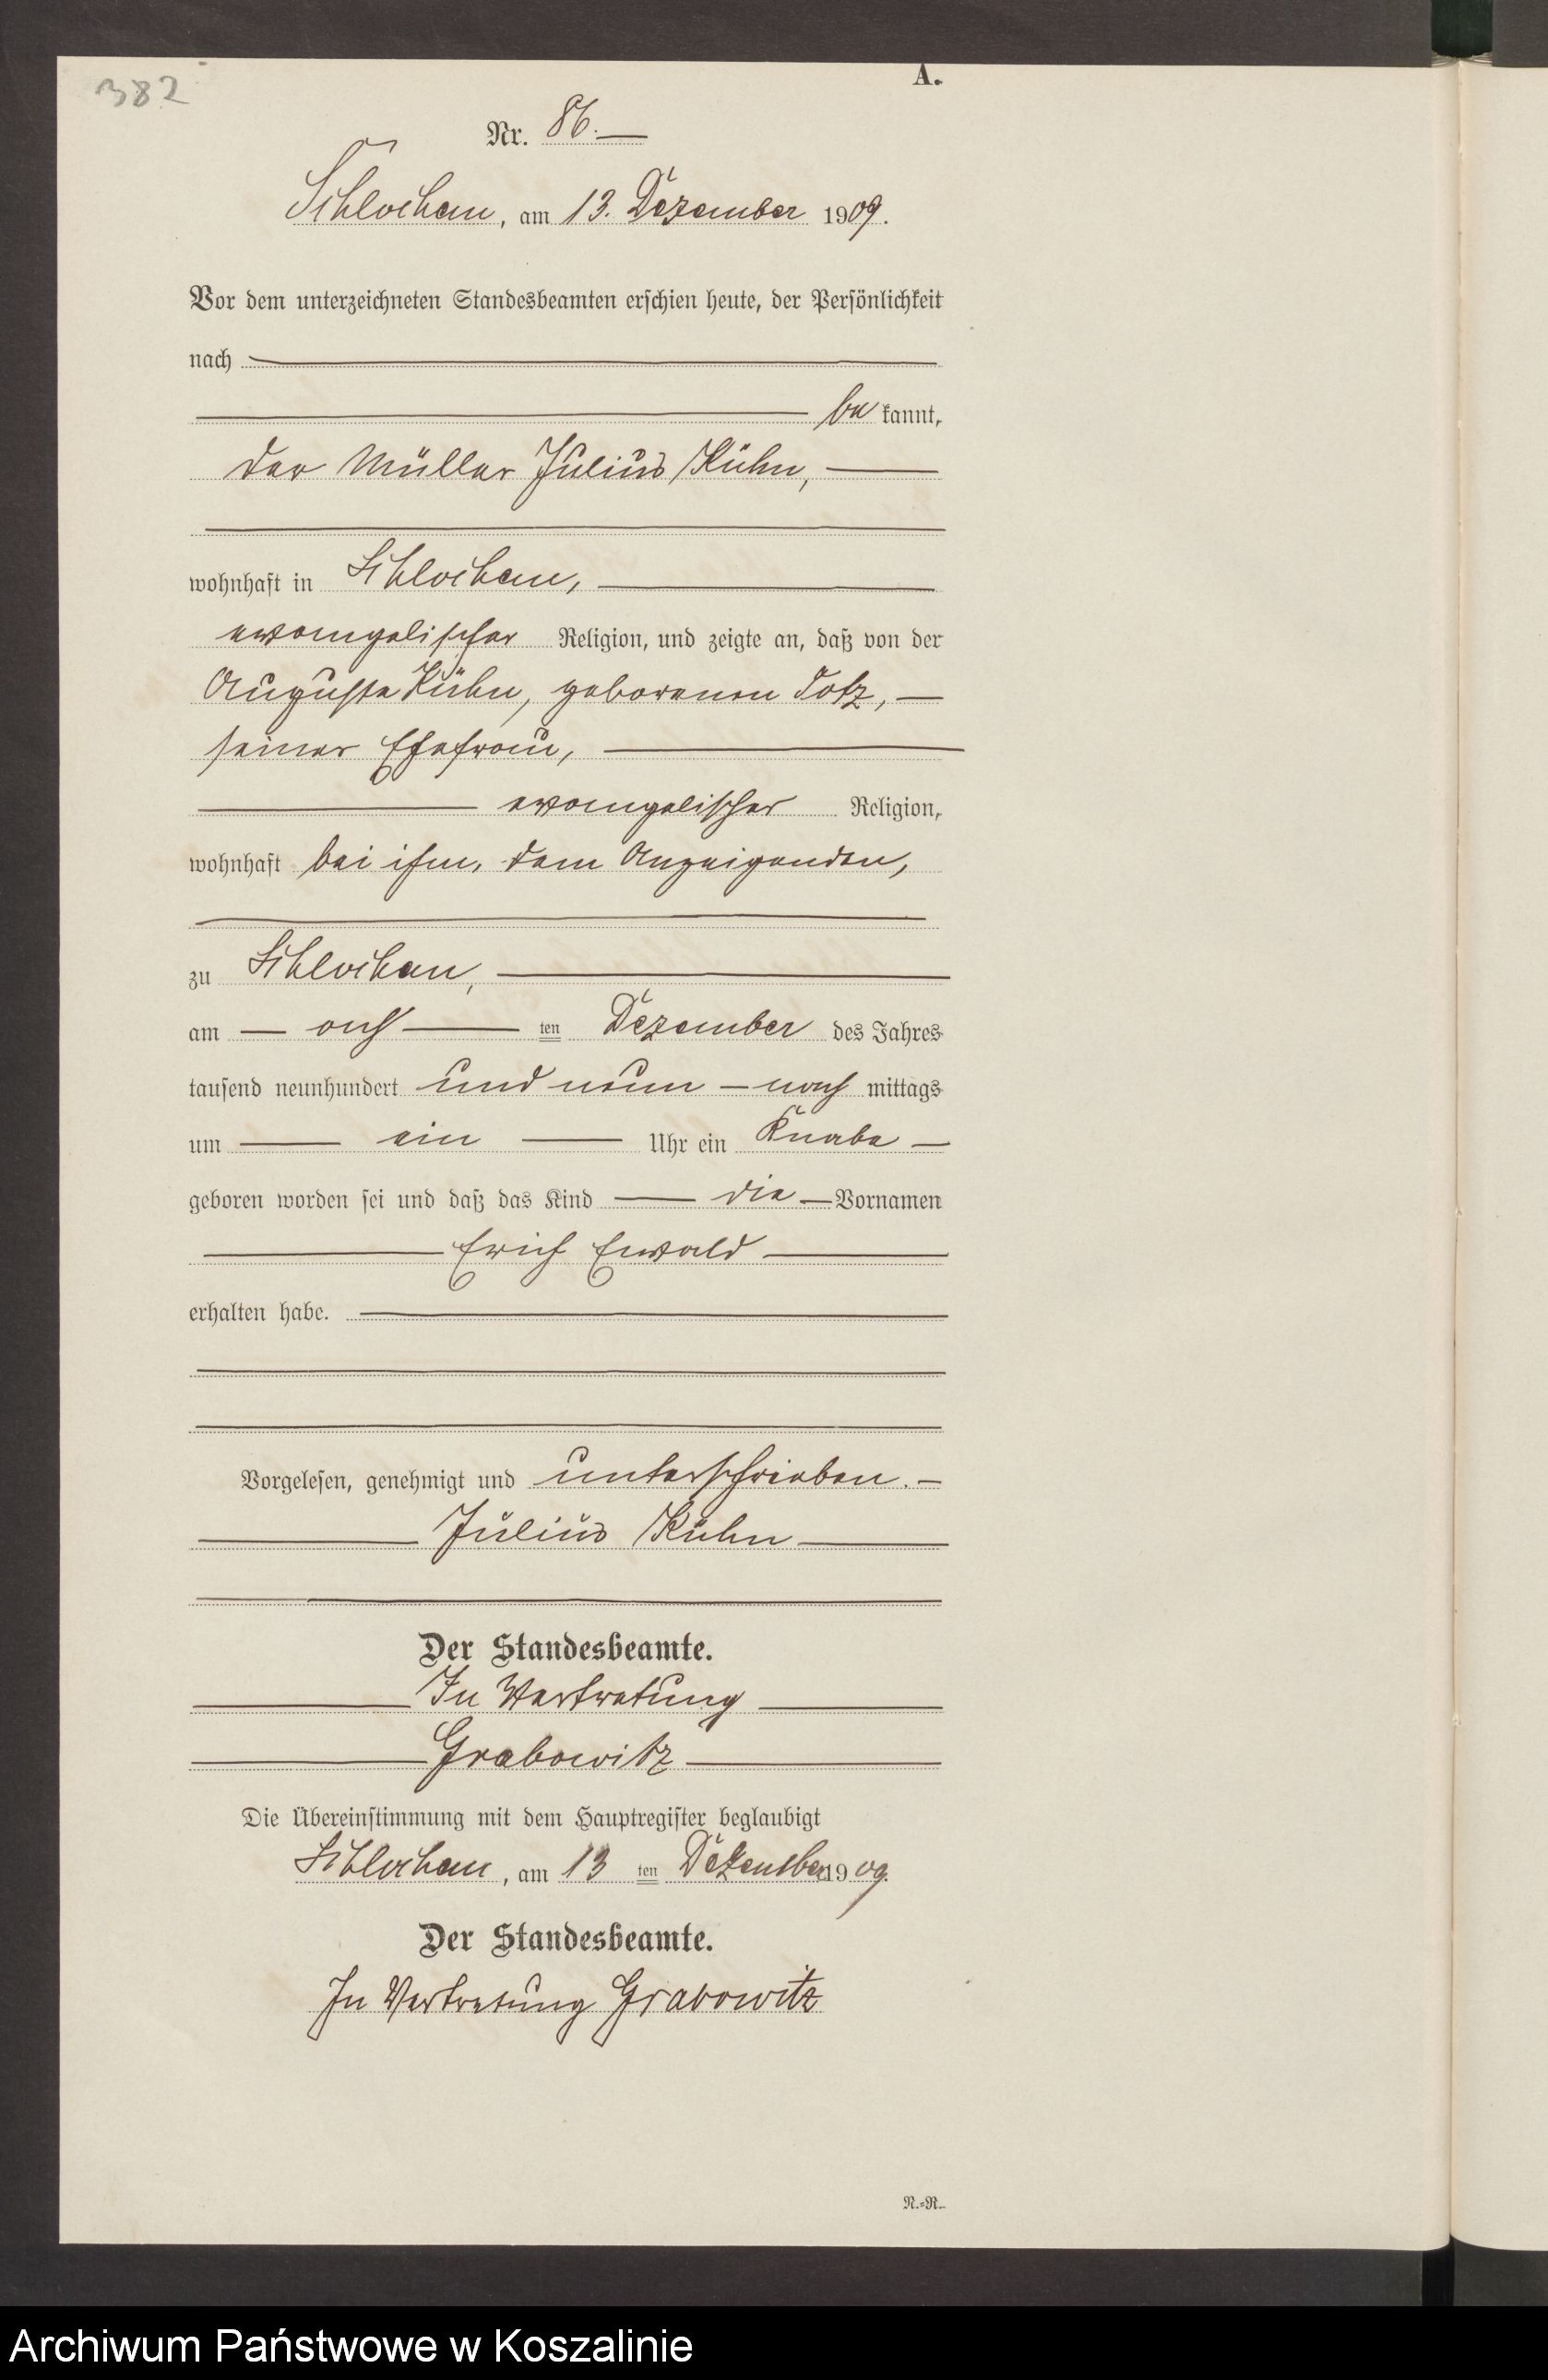 382
A.
Nr. 86.
Schlochau, am 13. Dezember 1909.
Vor dem unterzeichneten Standesbeamten erschien heute, der Persönlichkeit
nach
be kannt,
der Müller Julius Kühn,
wohnhaft in Schlochau,
evangelischer Religion, und zeigte an, daß von der
Auguste Kühn, geborenen Totz,
seiner Ehefrau,
evangelischer Religion,
wohnhaft bei ihm, dem Anzeigenden,
zu Schlochau,
am acht ten Dezember des Jahres
tausend neunhundert und neun nach mittags
um ein Uhr ein Knabe
geboren worden sei und daß das Kind die Vornamen
Erich Ewald
erhalten habe.
Vorgelesen, genehmigt und unterschrieben.
Julius Kühn
Der Standesbeamte.
In Vertretung
Grabowitz
Die Übereinstimmung mit dem Hauptregister beglaubigt
Schlochau, am 13 ten Dezember 1909.
Der Standesbeamte.
In Vertretung Grabowitz
N.-R.
Archiwum Państwowe w Koszalinie